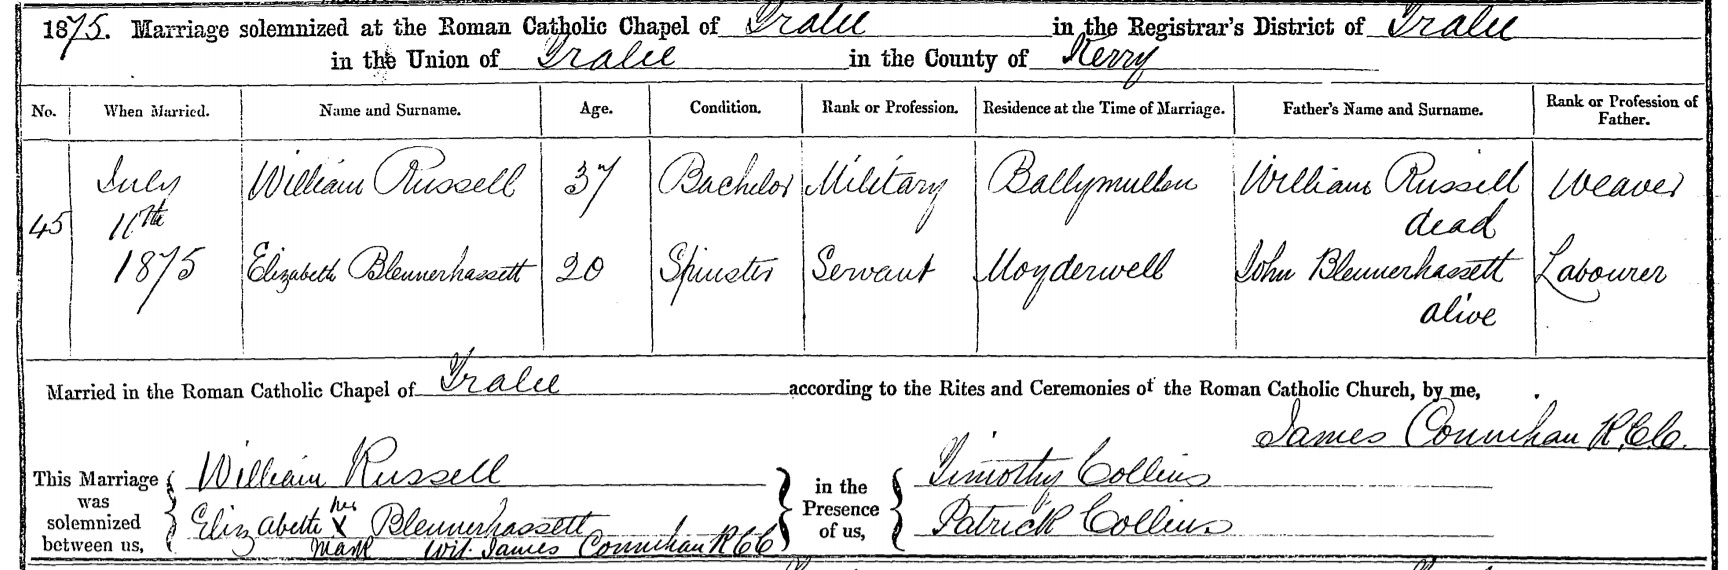 1875. Marriage solemnized at the Roman Catholic Chapel of Tralee in the Registrar's District of Tralee
in the Union of Tralee in the County of Kerry
No. When Married. Name and Surname. Age. Condition. Rank or Profession. Residence at the Time of Marriage. Father's Name and Surname. Rank or Profession of Father.
July William Russell 37 Bachelor Military Ballymullen William Russell Weaver
45 11th dead
1875 Elizabeth Blennerhassett 20 Spinster Servant Moyderwell John Blennerhassett Labourer
alive
Married in the Roman Catholic Chapel of Tralee according to the Rites and Ceremonies of the Roman Catholic Church, by me,
James Counihan R.C.C.
This Marriage was solemnized between us, William Russell in the Presence of us, Timothy Collins
Elizabeth her X Blennerhassett Patrick Collins
mark Wit. James Counihan RCC